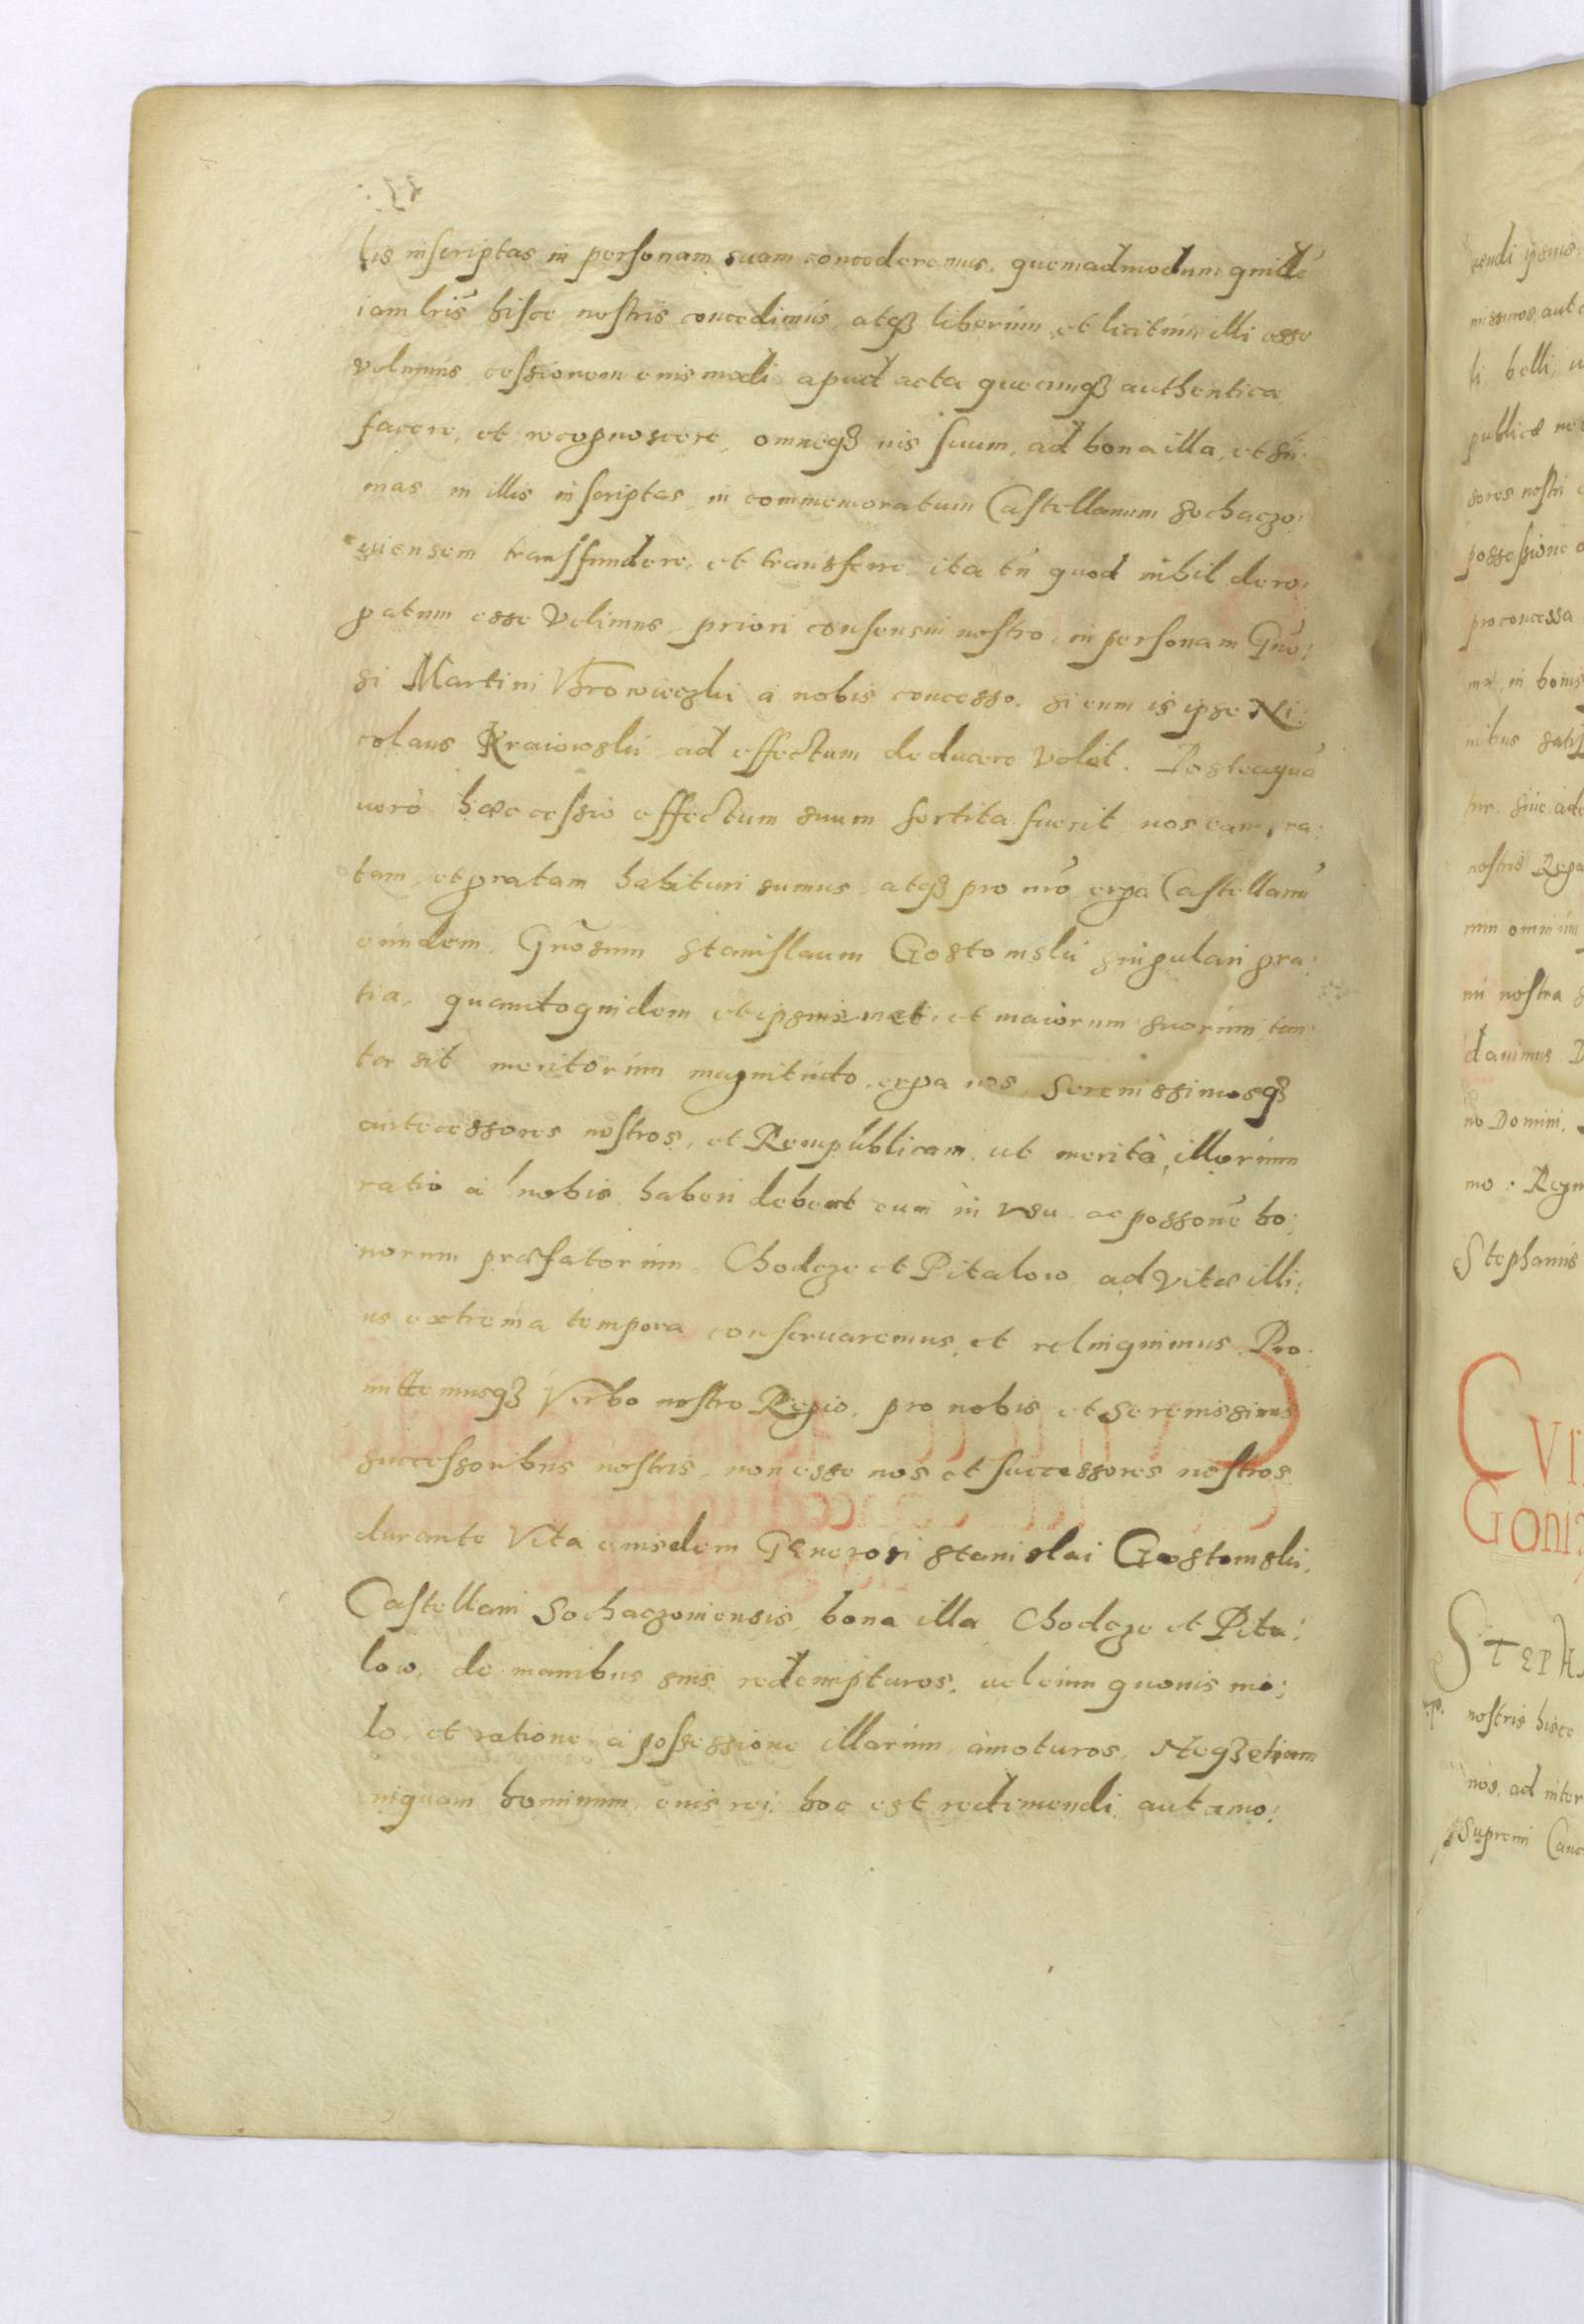 lis inscriptas in personam suam concederemus. quemadmodum quidẽ
iam lr̃is hisce nostris concedimus atqʒ liberum et licitum illi esse
volumus cessionem eiusmodi apud acta quecumqʒ authentica
facere, et recognoscere, omneqʒ ius suum, ad bona illa, et sũ:
mas in illis inscriptas in commemoratum Castellanum Sochaczo:
uiensem transfundere, et transferre ita tñ quod nihil dero:
gatum esse velimus priori consensui nostro in personam Gñ̃o:
si Martini Wrowiczki à nobis concesso. si eum is ipse Ni:
colaus Kraiowski ad effectum deducere volet. Posteaquã
uerò hæc cessio effectum suum sortita fuerit nos eam, ra:
tam et gratam habituri sumus atqʒ pro nrõ erga Castellanũ
eundem. Gñosum Stanislaum Gostomski singulari gra:
tia, quandoquidem et ipsiusmet, et maiorum suorum tan:
ta sit meritorum magnitudo, erga nos Serenissimosqʒ
antecessores nostros, et Rempublicam, ut merità, illorum
ratio à nobis haberi debeat eum in vsu ac possonẽ bo:
norum præfatorum Chodcze et Pitalow ad vitæ illi:
us extrema tempora conseruaremus, et relinquimus. Pro:
mittemusqʒ Verbo nostro Regio, pro nobis et Serenissimis
successoribus nostris, non esse nos et successores nostros
durante vita eiusdem Generosi Stanislai Gostomski,
Castellani Sochaczouiensis, bona illa Chodcze et Pita:
low, de manibus suis redempturos, uel eum quouis mo:
do, et ratione à possessione illarum, amoturos, Neqʒ etiam
cuiquam hominum, eius rei hoc est redimendi, aut amo:
uendi ipsius
missuros, aut c
li belli, u
publicæ ne
sores nostri
possessione
pro concessa
in bonis
nibus satis
tur. siue ade
nostris Rega
rum omnium
nu nostra s
dauimus D
no Domini,
mo. Regn
Stephanus
CVI
GONI
STEPH
nostris hisce
nos. ad inter
Supremi Canc